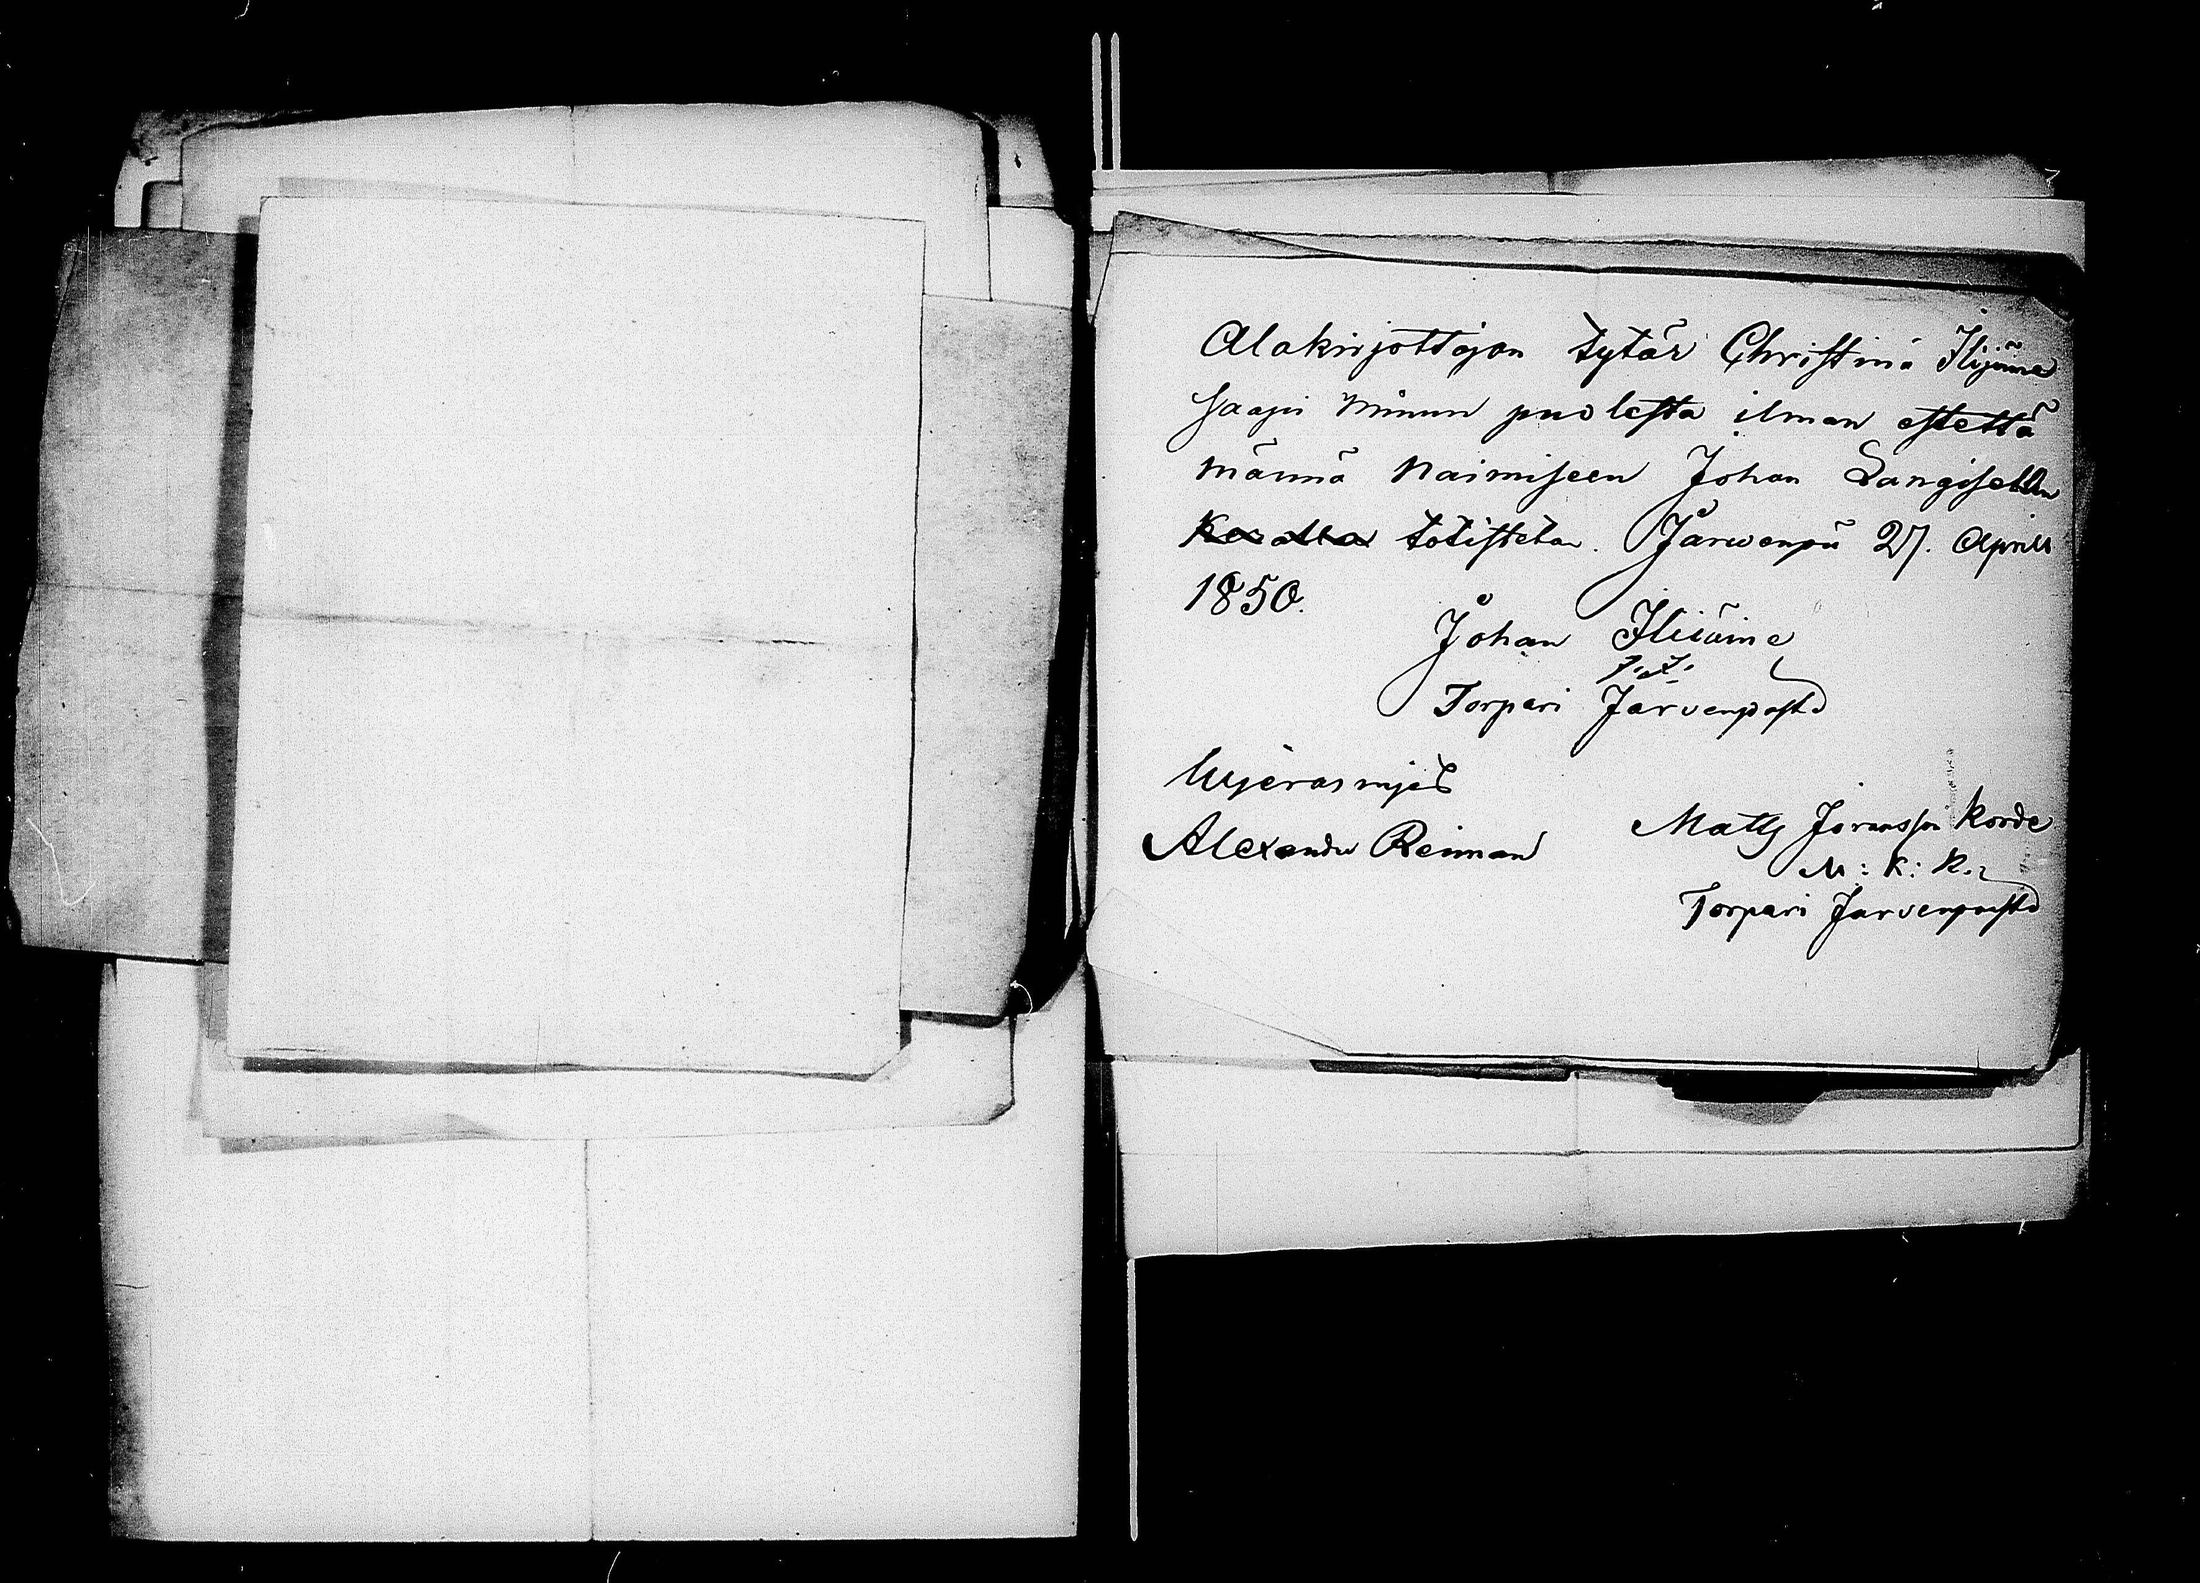 Alakirjottajan tytär Christina Ilijäine
saapi minun puolesta ilman estettä
männä naimiseen Johan Langisellen
totistetan. Järwenpä 27. April
1850.
Johan Iliäine
J. I.
Torpari Järvenpästä
Alexander Reiman
Matts Jöransson Korde
M: K: K.
Torpari Jarvenpästä